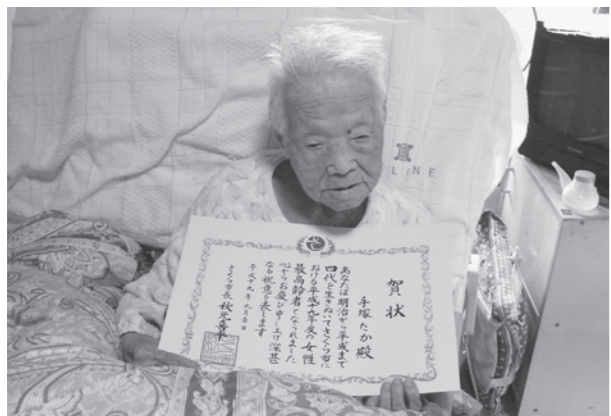 賀状
手塚たか殿
あなたは明治から平成まで
四代を生きぬいてさくら市に
おける平成十九年度の女性
最高齢者となられました
心からお慶び申し上げ深甚
なる祝意を表します
平成十九年九月吉日
さくら市長 秋元喜平
LINE